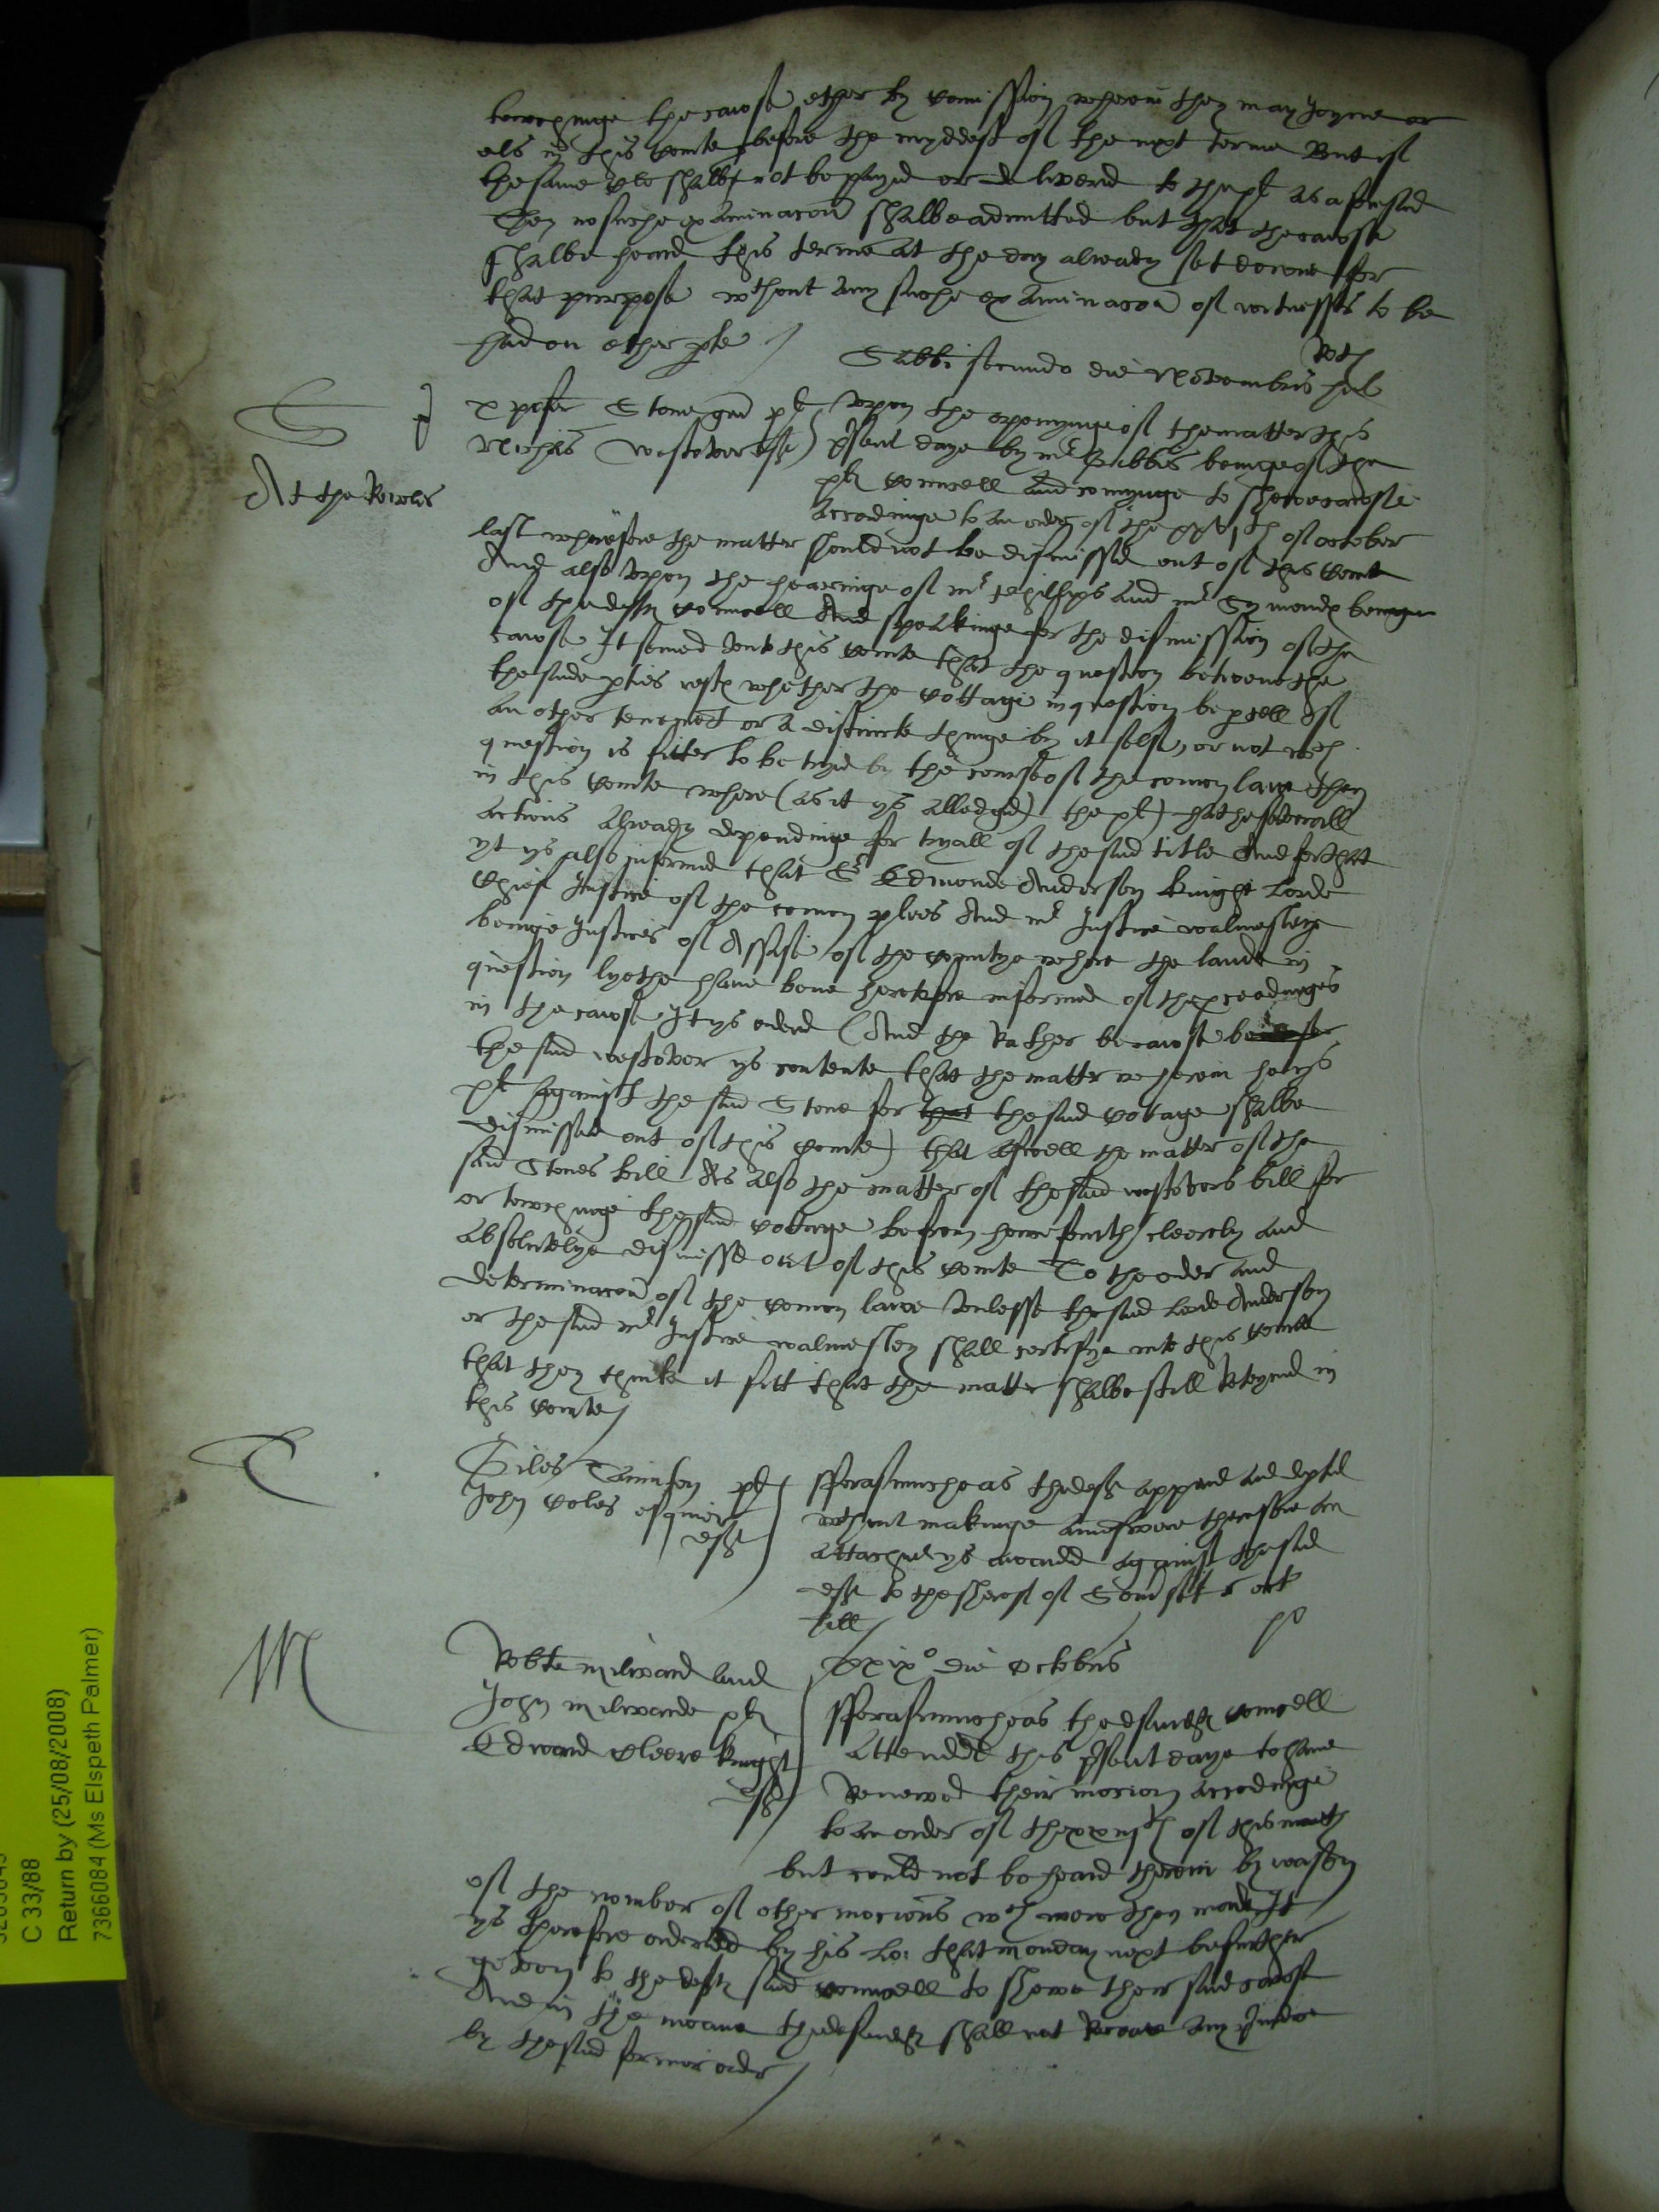 towchinge the cawse ether by comission wherein they may Joyne or
els in this Courte before the myddest of the next terme But if
the same xls shalbe not be payed or delivered to the plt as aforesaid
Then no suche examinacon shalbe admitted but that the cawse
shalbe heard this terme at the day already set downe for
that purpose wthout any suche examinacon of witnesses to be
had on ether pte /
Sabbi secundo die Novembris
S
xpofer Stone gen plt Upon the openynge of the matter this
Nichas Westover deft psent daye by mr Gibbes beinge of the
At the Rowles
plts councell and comynge to shewe cawse
accordinge to an order of the of october
last wherefore the matter should not be dismissed out of this Courte
And also upon the hearinge of mr Phillips and mr Symondes beinge
of the defts councell And speakinge for the dismission of the
cawse It semed unto this courte that the question betwene the
the saide pties resteth whether the cottage in question be pcell of
an other tenemt or a distincte thinge by it selfe, or not wch
question is fitter to be tryed by the course of the comon lawe then
in this courte where (as it ys alledged) the plt hathe severall
actions already dependinge for tryall of the said title And for that
yt ys also informed that Sr Edmonde Anderson knight Lorde
chief Justice of the comon plees And mr Justice walmesleye
beinge Justices of Assise of the countye where the lande in
question lyethe have bene heretofore informed of the pceedinges
in the cawse It ys ordered (And the Rather becawse
the said westover ys contente that the matter wherein he ys
plt against the said Stone for that the said cotage shalbe
dismissed out of this courte) that aswell the matter of the
said Stones bill As also the matter of the said westovers bill for
or towchinge the said cottage be from hencefourth cleerely and
absolutelye dismissed out of this courte To the order and
determinacon of the comon lawe Unlesse the said Lorde Anderson
or the said mr Justice walmesley shall certifye into this courte
that they thinke it fitt that the matter shalbe still Reteyned in
this courte /
T
Giles Tomson plt fforasmuche as the deft appered and depted
John Coles esquier wthout makinge Aunswere therefore an
deft attachmt ys awarded against the said
deft to the Sheref of Somsett
M
Robte milward and xxixo die Octobris
John milwarde plts fforasmuche as the defendts councell
Edward Cleere knight attended this psent daye to have
deft Renewed their mocion accordinge
to an order of the of this moneth
but could not be heard therein by reason
of the nomber of other mocions wch were then made It
ys therefore ordered by his Lo: that monday next be further
geven to the defts said councell to shewe their said cawse
And in the meane the defendt shall not Receave any
by the said former order /
C 33/88
Return by (25/08/2008)
7366084 (Ms Elspeth Palmer)